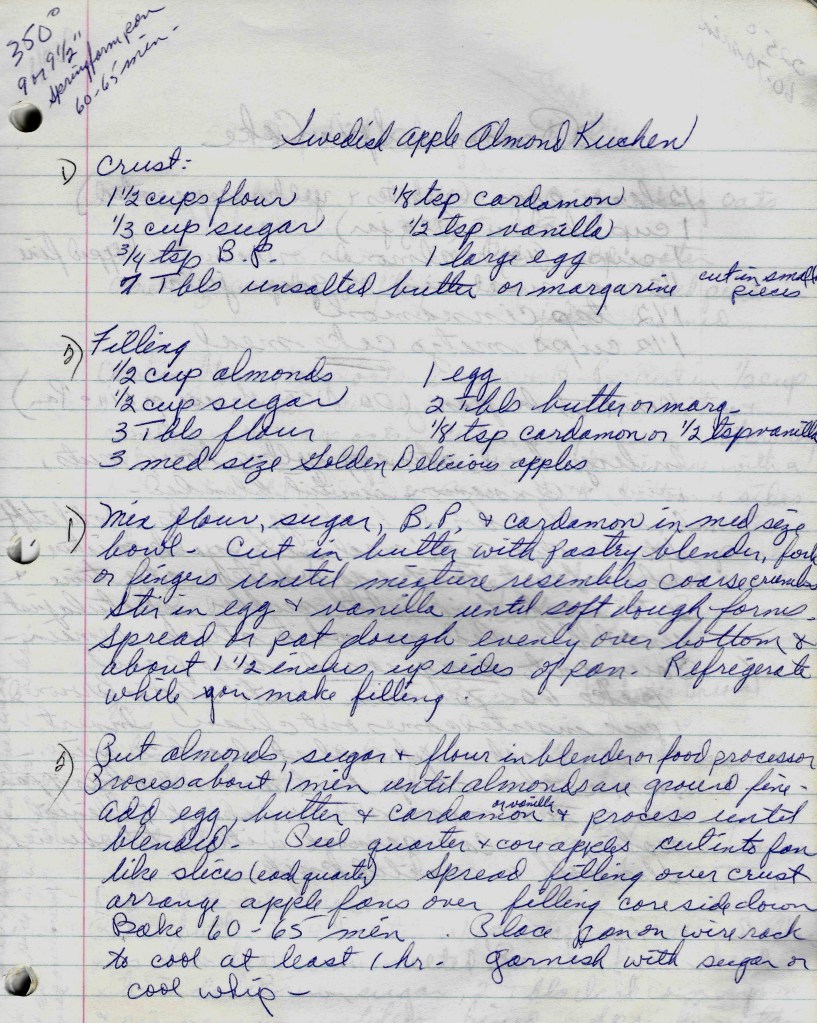 350°
9 or 9 1/2"
Springform pan
60-65 min.
Swedish Apple Almond Kuchen
1) Crust:
1 1/2 cups flour 1/8 tsp cardamon
1/3 cup sugar 1/2 tsp vanilla
3/4 tsp B.P. 1 large egg
7 Tbls unsalted butter or margarine cut in small pieces
2) Filling
1/2 cup almonds 1 egg
1/2 cup sugar 2 Tbls butter or marg.
3 Tbls flour 1/8 tsp cardamon or 1/2 tsp vanilla
3 med size Golden Delicious apples
1) Mix flour, sugar, B.P. & cardamon in med size
bowl - Cut in butter with pastry blender, fork
or fingers until mixture resembles coarse crumbs
Stir in egg & vanilla until soft dough forms.
Spread or pat dough evenly over bottom &
about 1 1/2 inches up sides of pan. Refrigerate
while you make filling.
2) Put almonds, sugar & flour in blender or food processor
Process about 1 min until almonds are ground fine -
add egg, butter & cardamon or vanilla & process until
blended - Peel quarter & core apples cut into fan
like slices (each quarter) Spread filling over crust
arrange apple fans over filling core side down
Bake 60-65 min. Place pan on wire rack
to cool at least 1 hr - garnish with sugar or
cool whip -